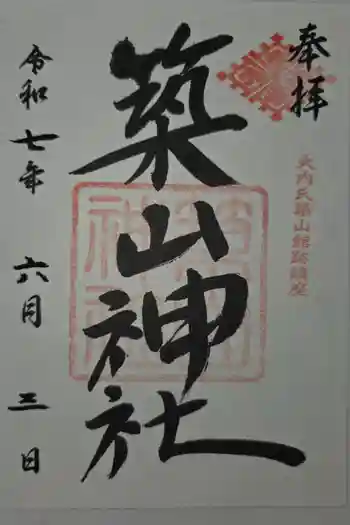 奉拝
大内氏築山館跡鎮座
築山神社
令和七年 六月 三日